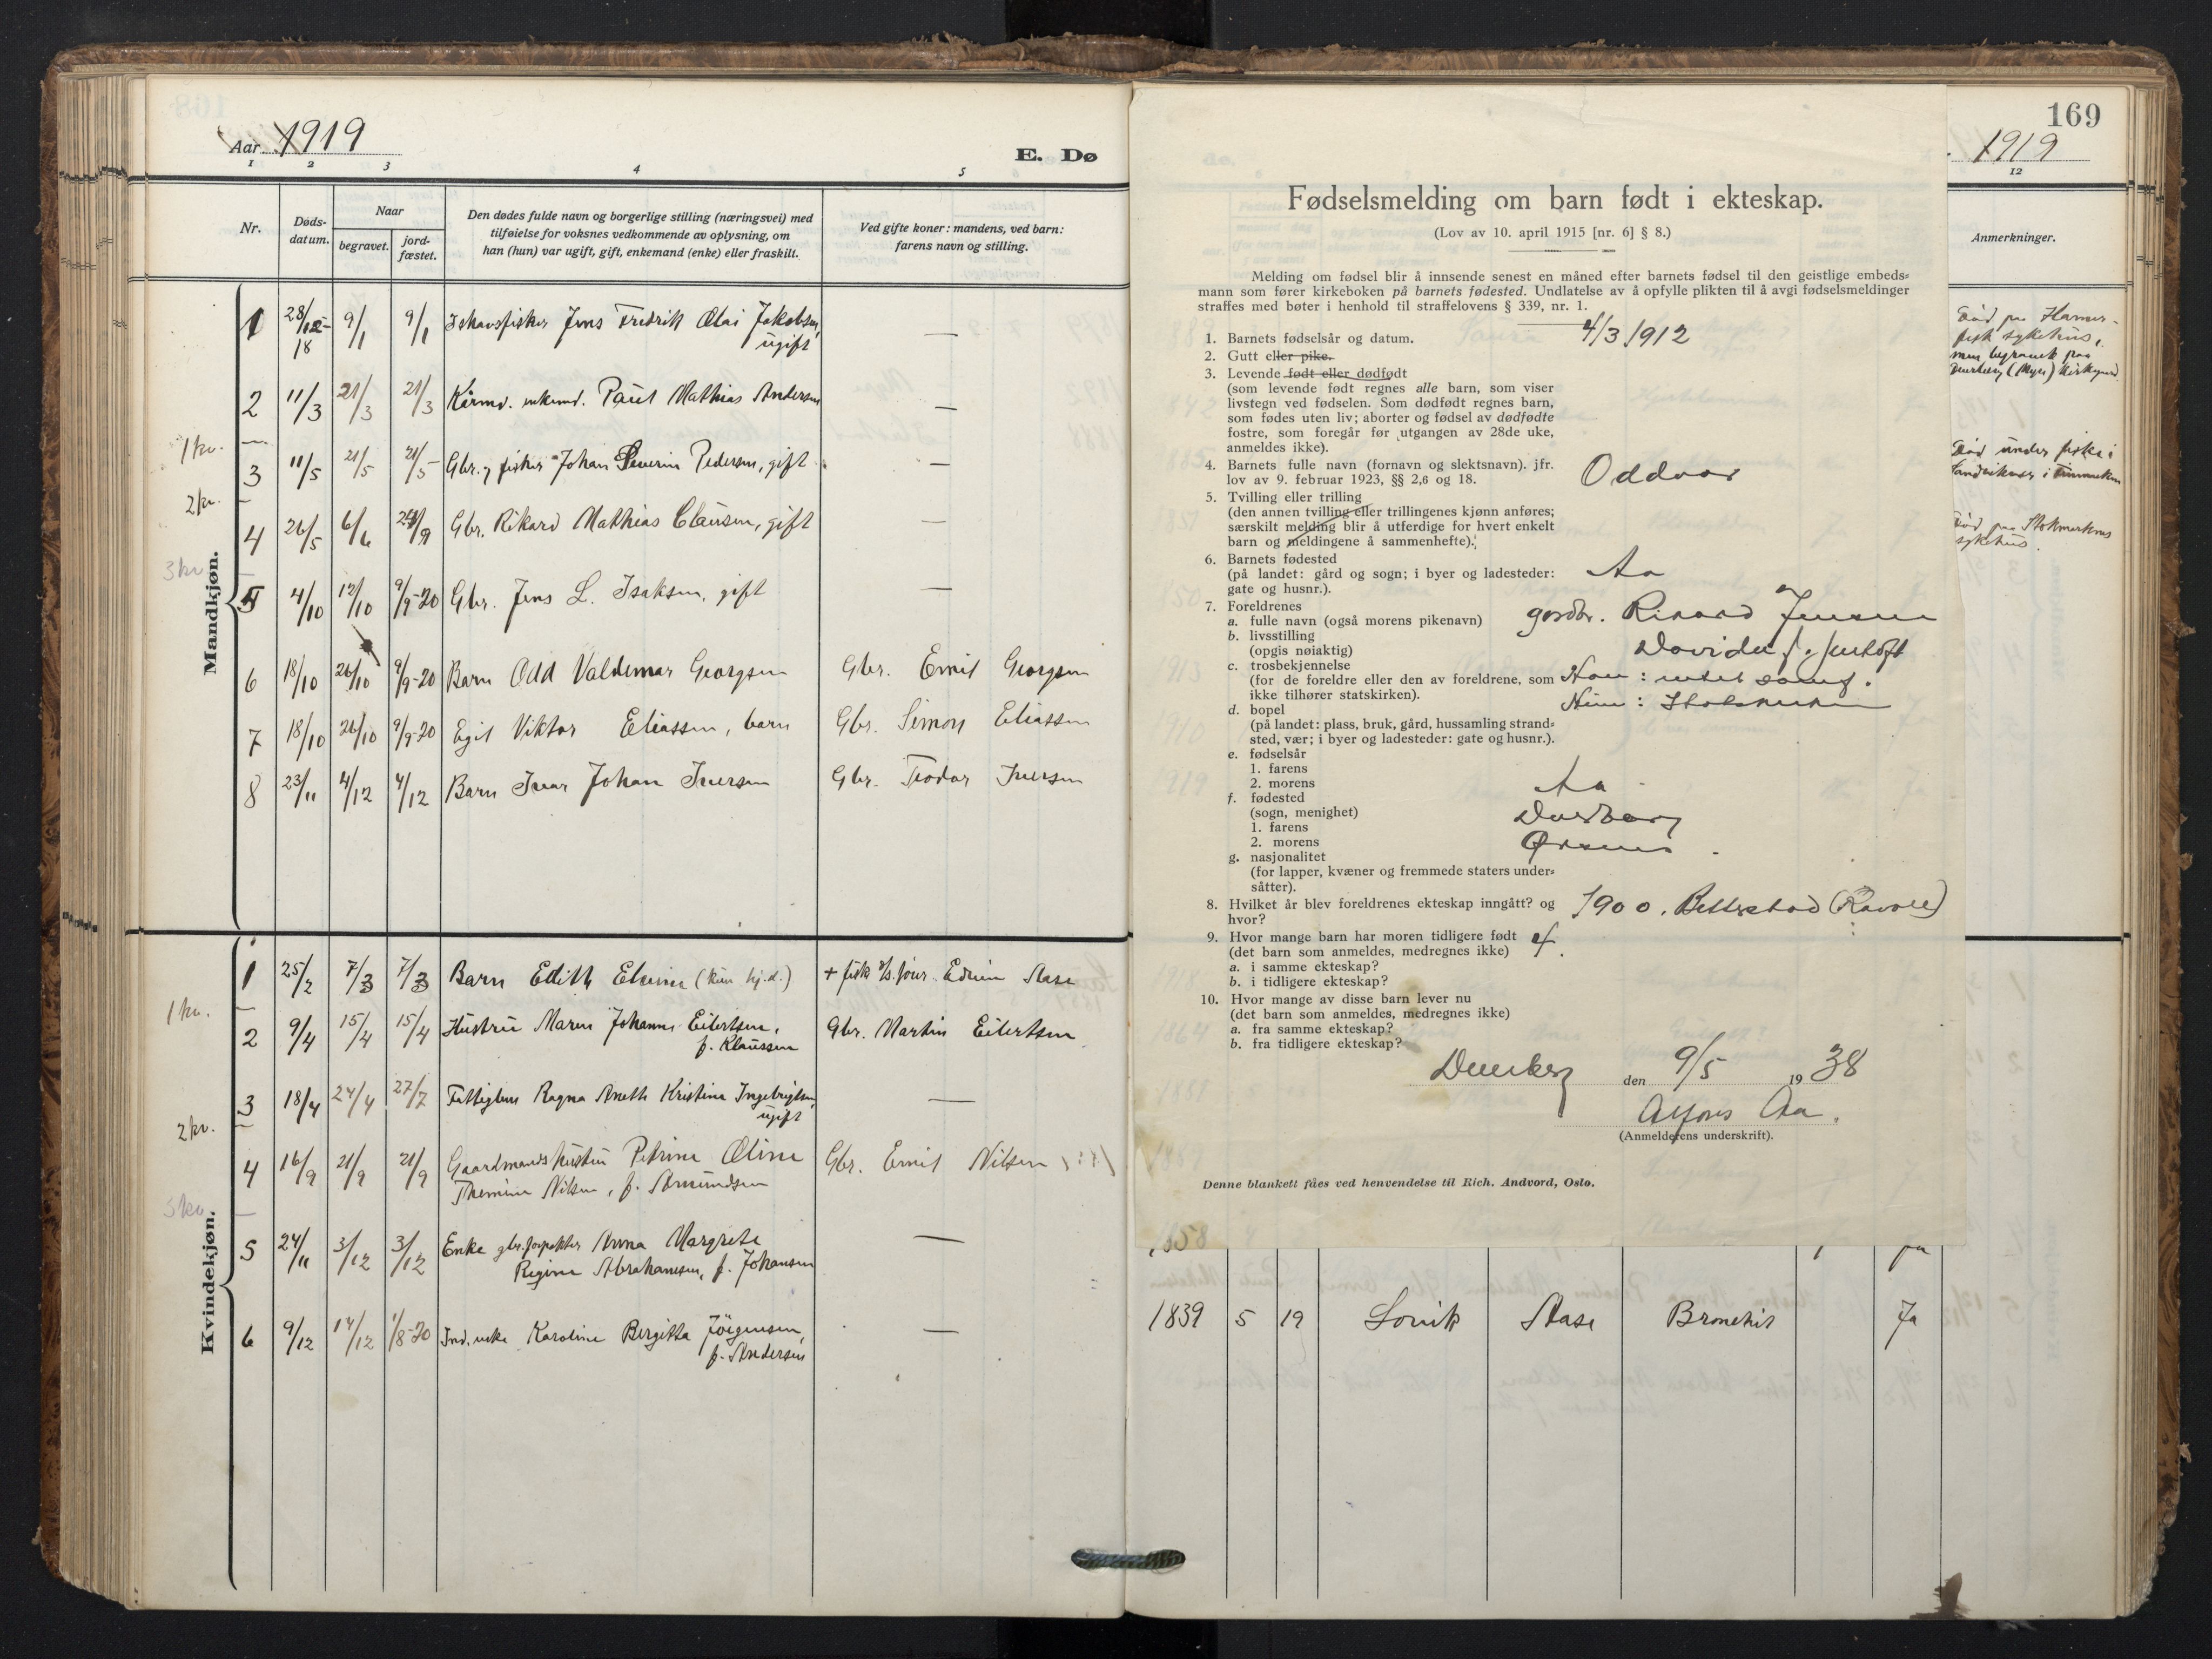 Aar 1919
E. Dø
1 2 3 4 5
Nr.
Døds-
datum.
Naar
begravet.
jord-
fæstet.
Den dødes fulde navn og borgerlige stilling (næringsvei) med
tilføielse for voksnes vedkommende av oplysning, om
han (hun) var ugift, gift, enkemand (enke) eller fraskilt.
Ved gifte koner: mandens, ved barn:
farens navn og stilling.
Mandkjøn.
1 28/12-18 9/1 9/1 Ishavsfisker Jens Fredrik Olai Jakobsen, —
ugift
2 11/3 21/3 21/3 Kårmd. enkemd. Paul Mathias Andersen —
1 kv.
3 11/5 21/5 21/5 Gbr. og fisker Johan Severin Pedersen, gift —
2 kv.
4 26/5 6/6 21/9 Gbr. Rikard Mathias Clausen, gift —
3 kv.
5 4/10 12/10 9/9-20 Gbr. Jens L. Isaksen, gift —
6 18/10 26/10 9/9-20 Barn Odd Valdemar Georgsen Gbr. Emil Georgsen
7 18/10 26/10 9/9-20 Egil Viktor Eliassen, barn Gbr. Simon Eliassen
8 23/11 4/12 4/12 Barn Ivar Johan Iversen Gbr. Teodor Iversen
Kvindekjøn.
1 25/2 7/3 7/3 Barn Edith Elvina (kun hj.d.) + fisk Edvin Aase
1 kv.
2 9/4 15/4 15/4 Hustru Maren Johanne Eilertsen, Gbr. Martin Eilertsen
f. Klaussen
3 18/4 24/4 27/7 Fattiglem Ragna Aneth Kristine Ingebrigtsen, —
ugift
2 kv.
4 16/9 21/9 21/9 Gaardmandshustru Petrine Oline Gbr. Emil Nilsen
Nilsen, f. Amundsen
3 kv.
5 24/11 3/12 3/12 Enke gbr. forpakter Anna Margrete —
Regine Abrahamsen, f. Johansen
6 9/12 14/12 1/8-20 Ind. enke Karoline Bergitta Jörgensen, —
f. Andersen
Fødselsmelding om barn født i ekteskap.
(Lov av 10. april 1915 [nr. 6] § 8.)
Melding om fødsel blir å innsende senest en måned efter barnets fødsel til den geistlige embeds=
mann som fører kirkeboken på barnets fødested. Undlatelse av å opfylle plikten til å avgi fødselsmeldinger
straffes med bøter i henhold til straffelovens § 339, nr. 1.
1. Barnets fødselsår og datum. 4/3 1912
2. Gutt eller pike.
3. Levende født eller dødfødt
(som levende født regnes alle barn, som viser
livstegn ved fødselen. Som dødfødt regnes barn,
som fødes uten liv; aborter og fødsel av dødfødte
fostre, som foregår før utgangen av 28de uke,
anmeldes ikke).
4. Barnets fulle navn (fornavn og slektsnavn). jfr.
lov av 9. februar 1923, §§ 2,6 og 18. Oddvar
5. Tvilling eller trilling
(den annen tvilling eller trillingenes kjønn anføres;
særskilt melding blir å utferdige for hvert enkelt
barn og meldingene å sammenhefte).
6. Barnets fødested
(på landet: gård og sogn; i byer og ladesteder: Aa
gate og husnr.).
7. Foreldrenes
a. fulle navn (også morens pikenavn) gardbr. Rikard Jensen
b. livsstilling
(opgis nøiaktig) Davida f. Justoft
c. trosbekjennelse
(for de foreldre eller den av foreldrene, som Han: utet samf.
ikke tilhører statskirken). Hun: Statskirken
d. bopel
(på landet: plass, bruk, gård, hussamling strand=
sted, vær; i byer og ladesteder: gate og husnr.).
e. fødselsår
1. farens
2. morens Aa
f. fødested
(sogn, menighet)
1. farens Dverberg
2. morens Øksnes
g. nasjonalitet
(for lapper, kvæner og fremmede staters under=
såtter).
8. Hvilket år blev foreldrenes ekteskap inngått? og 1900.
hvor?
9. Hvor mange barn har moren tidligere født 4.
(det barn som anmeldes, medregnes ikke)
a. i samme ekteskap?
b. i tidligere ekteskap?
10. Hvor mange av disse barn lever nu
(det barn som anmeldes, medregnes ikke)
a. fra samme ekteskap?
b. fra tidligere ekteskap?
Dverberg den 9/5 1938
Alfons Aa.
(Anmelderens underskrift).
Denne blankett fåes ved henvendelse til Rich. Andvord, Oslo.
169
1919
12
Anmerkninger.
Död paa Hammer-
fest sykehus,
men begravet paa
Dverberg (Myre) kirkegaard
Död under fiske i
Finnmarken
Död paa Stokmarknes
sykehus.
1858 Ja
1839 5 19 Lovik Aase Bronchit Ja